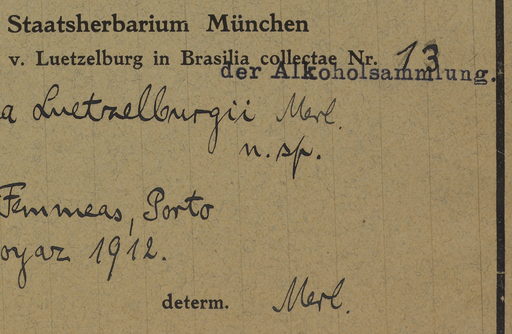 Staatsherbarium München
v. Luetzelburg in Brasilia collectae Nr. 13
der Alkoholsammlung.
a Luetzelburgii Merl.
n. sp.
Femmeas, Porto
oyaz 1912.
determ. Merl.